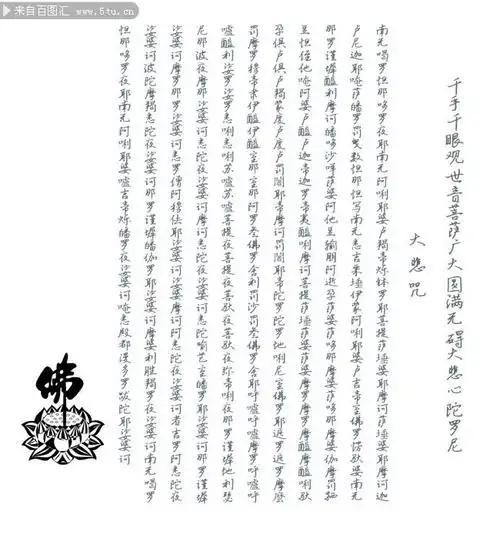 千手千眼观世音菩萨广大圆满无碍大悲心陀罗尼
大悲咒
南无喝罗怛那哆罗夜耶南无阿唎耶婆卢羯帝烁钵罗耶菩提萨埵婆耶摩诃萨埵婆耶摩诃迦
卢尼迦耶唵萨皤罗罚曳数怛那怛写南无悉吉栗埵伊蒙阿唎耶婆卢吉帝室佛罗愣驮婆南无
那罗谨墀醯利摩诃皤哆沙咩萨婆阿他呈输朋阿逝孕萨婆萨哆那摩婆萨哆那摩婆伽摩罚牺
呈怛侄他唵阿婆卢醯卢迦帝迦罗帝夷醯唎摩诃菩提萨埵萨婆萨婆摩罗摩罗摩醯摩醯唎驮
孕俱卢俱卢羯蒙度卢度卢罚阇耶帝摩诃罚阇耶帝陀罗陀罗地唎尼室佛罗耶遮罗遮罗摩麽
罚摩罗穆帝隶伊醯伊醯室那室那阿罗参佛罗舍利罚沙罚参佛罗舍耶呼嚧呼嚧摩罗呼嚧呼
嚧醯利娑罗娑罗悉唎悉唎苏嚧苏嚧菩提夜菩提夜菩驮夜菩驮夜弥帝唎夜那罗谨墀地利瑟
尼那波夜摩那娑婆诃悉陀夜娑婆诃摩诃悉陀夜娑婆诃悉陀喻艺室皤罗耶娑婆诃那罗谨墀
娑婆诃摩罗那罗娑婆诃悉罗僧阿穆佉耶娑婆诃娑婆摩诃阿悉陀夜娑婆诃者吉罗阿悉陀夜
娑婆诃波陀摩羯悉陀夜娑婆诃那罗谨墀皤伽罗耶娑婆诃摩婆利胜羯罗夜娑婆诃南无喝罗
怛那哆罗夜耶南无阿唎耶婆嚧吉帝烁皤罗夜娑婆诃唵悉殿都漫多罗跋陀耶娑婆诃
佛
来自百图汇
www.5tu.cn